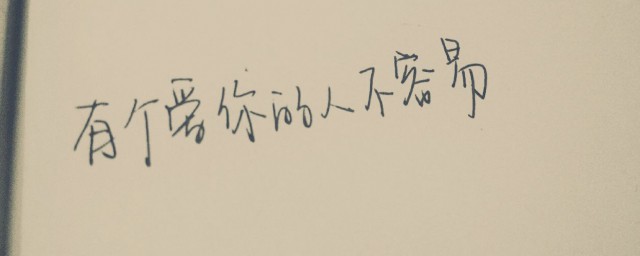 有个爱你的人不容易